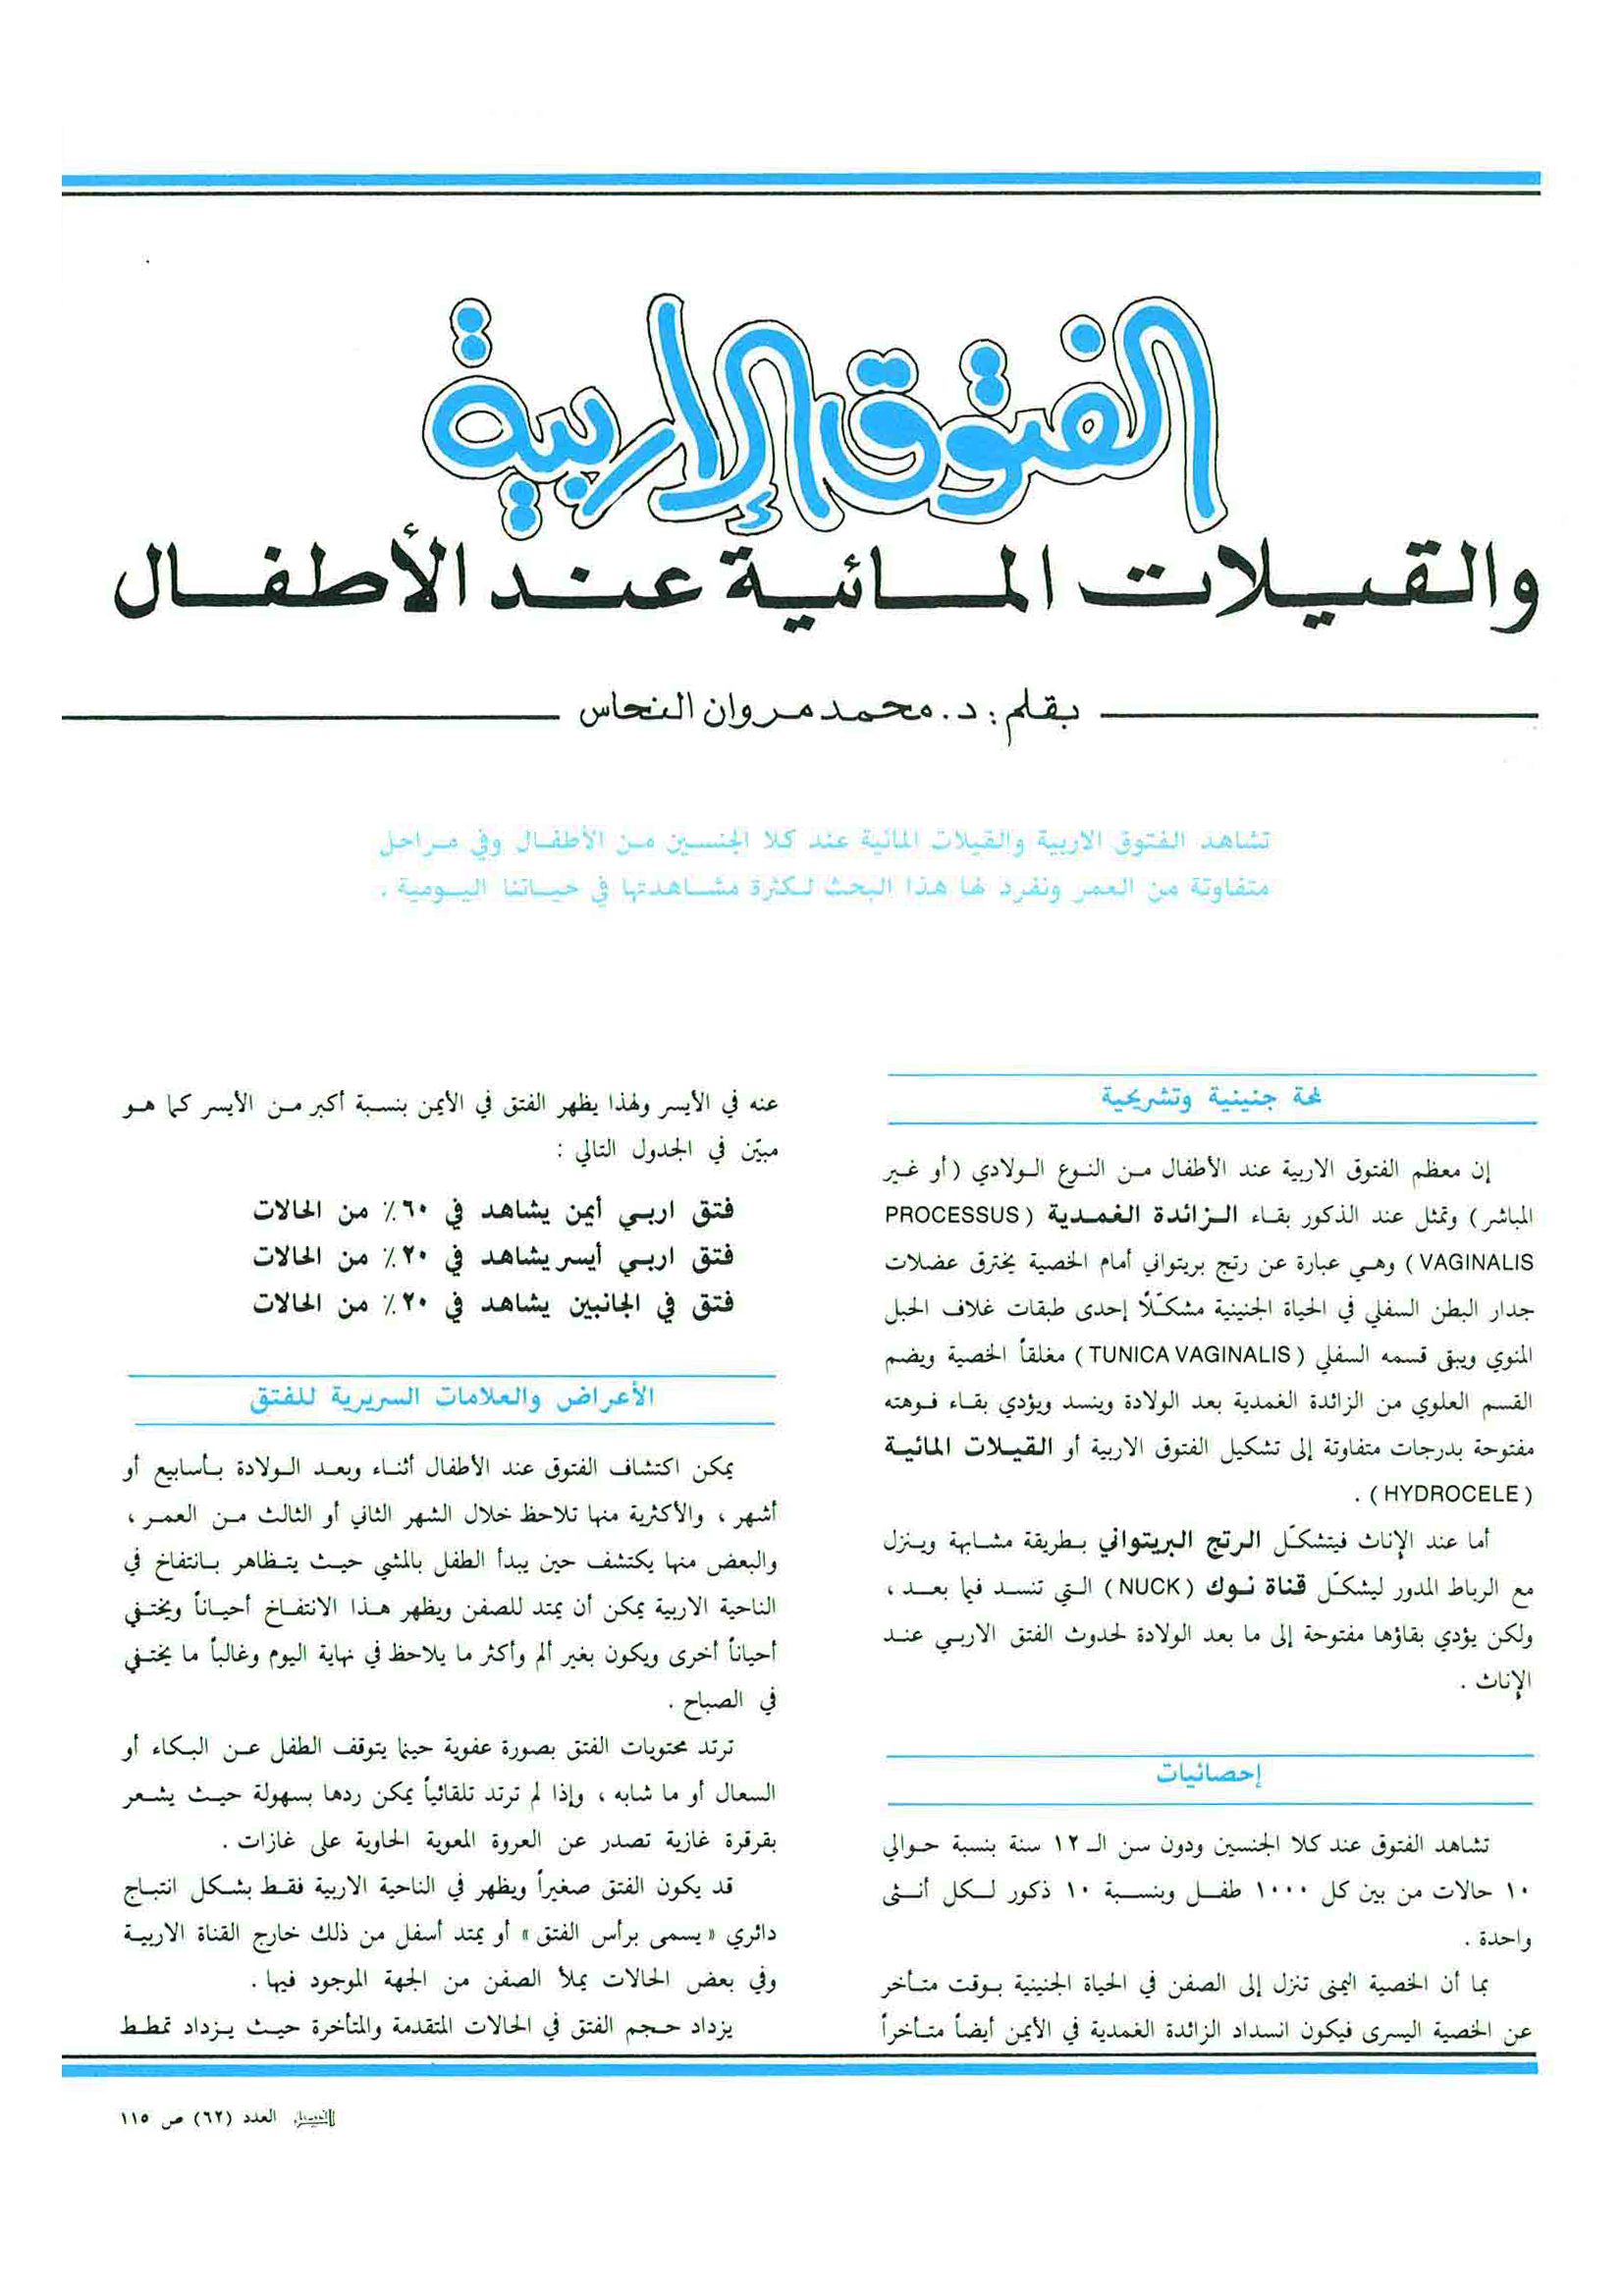 الفتوق الإربية
والقيلات المائية عند الأطفال
بقلم : د. محمد مروان النحاس
تشاهد الفتوق الاربية والقيلات المائية عند كلا الجنسين من الأطفال وفي مراحل
متفاوتة من العمر ونفرد لها هذا البحث لكثرة مشاهدتها في حياتنا اليومية .
لمحة جنينية وتشريحية
إن معظم الفتوق الاربية عند الأطفال من النوع الولادي (أو غير
المباشر) وتمثل عند الذكور بقاء الزائدة الغمدية (PROCESSUS
VAGINALIS) وهي عبارة عن رتج بريتواني أمام الخصية يخترق عضلات
جدار البطن السفلي في الحياة الجنينية مشكّلاً إحدى طبقات غلاف الحبل
المنوي ويبقى قسمه السفلي (TUNICA VAGINALIS) مغلقاً الخصية ويضم
القسم العلوي من الزائدة الغمدية بعد الولادة وينسد ويؤدي بقاء فوهته
مفتوحة بدرجات متفاوتة إلى تشكيل الفتوق الاربية أو القيلات المائية
(HYDROCELE) .
أما عند الإناث فيتشكّل الرتج البريتواني بطريقة مشابهة وينزل
مع الرباط المدور ليشكّل قناة نوك (NUCK) التي تنسد فيما بعد ،
ولكن يؤدي بقاؤها مفتوحة إلى ما بعد الولادة لحدوث الفتق الاربي عند
الإناث .
إحصائيات
تشاهد الفتوق عند كلا الجنسين ودون سن الـ ١٢ سنة بنسبة حوالي
١٠ حالات من بين كل ١٠٠٠ طفل وبنسبة ١٠ ذكور لكل أنثى
واحدة .
بما أن الخصية اليمنى تنزل إلى الصفن في الحياة الجنينية بوقت متأخر
عن الخصية اليسرى فيكون انسداد الزائدة الغمدية في الأيمن أيضاً متأخراً
عنه في الأيسر ولهذا يظهر الفتق في الأيمن بنسبة أكبر من الأيسر كما هو
مبيّن في الجدول التالي :
فتق اربي أيمن يشاهد في ٦٠٪ من الحالات
فتق اربي أيسر يشاهد في ٢٠٪ من الحالات
فتق في الجانبين يشاهد في ٢٠٪ من الحالات
الأعراض والعلامات السريرية للفتق
يمكن اكتشاف الفتوق عند الأطفال أثناء وبعد الولادة بأسابيع أو
أشهر ، والأكثرية منها تلاحظ خلال الشهر الثاني أو الثالث من العمر ،
والبعض منها يكتشف حين يبدأ الطفل بالمشي حيث يتظاهر بانتفاخ في
الناحية الاربية يمكن أن يمتد للصفن ويظهر هذا الانتفاخ أحياناً ويختفي
أحياناً أخرى ويكون بغير ألم وأكثر ما يلاحظ في نهاية اليوم وغالباً ما يختفي
في الصباح .
ترتد محتويات الفتق بصورة عفوية حينما يتوقف الطفل عن البكاء أو
السعال أو ما شابه ، وإذا لم ترتد تلقائياً يمكن ردها بسهولة حيث يشعر
بقرقرة غازية تصدر عن العروة المعوية الحاوية على غازات .
قد يكون الفتق صغيراً ويظهر في الناحية الاربية فقط بشكل انتباج
دائري «يسمى برأس الفتق» أو يمتد أسفل من ذلك خارج القناة الاربية
وفي بعض الحالات يملأ الصفن من الجهة الموجود فيها .
يزداد حجم الفتق في الحالات المتقدمة والمتأخرة حيث يزداد تمطط
العدد (٦٢) ص ١١٥